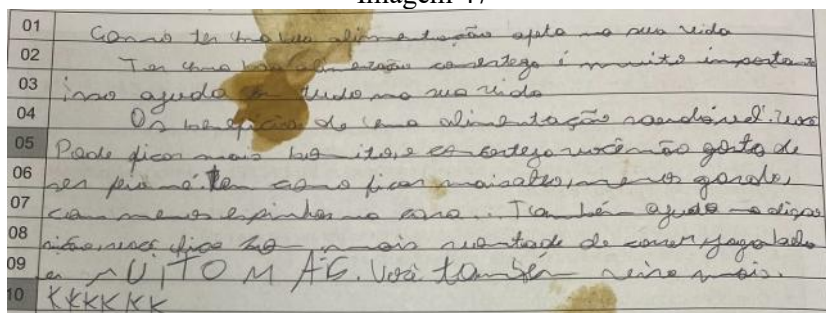 Imagem 47
01 Como ter uma boa alimentação afeta na sua vida
02 Ter uma boa alimetação comcertega é muito importa
03 isso ajuda em tudo na sua vida
04 Os beneficios de uma alimentação saudável. você
05 Pode ficar mais bonito, e comcertega você não gosta de
06 ser feio né. tem como ficar mais alto, menos gordo,
07 com menos espinhas na cara.. Também ajuda na diges
08 você fica com mais vontade de comer
09 MUITO MAG. Você também
10 KKKKKK